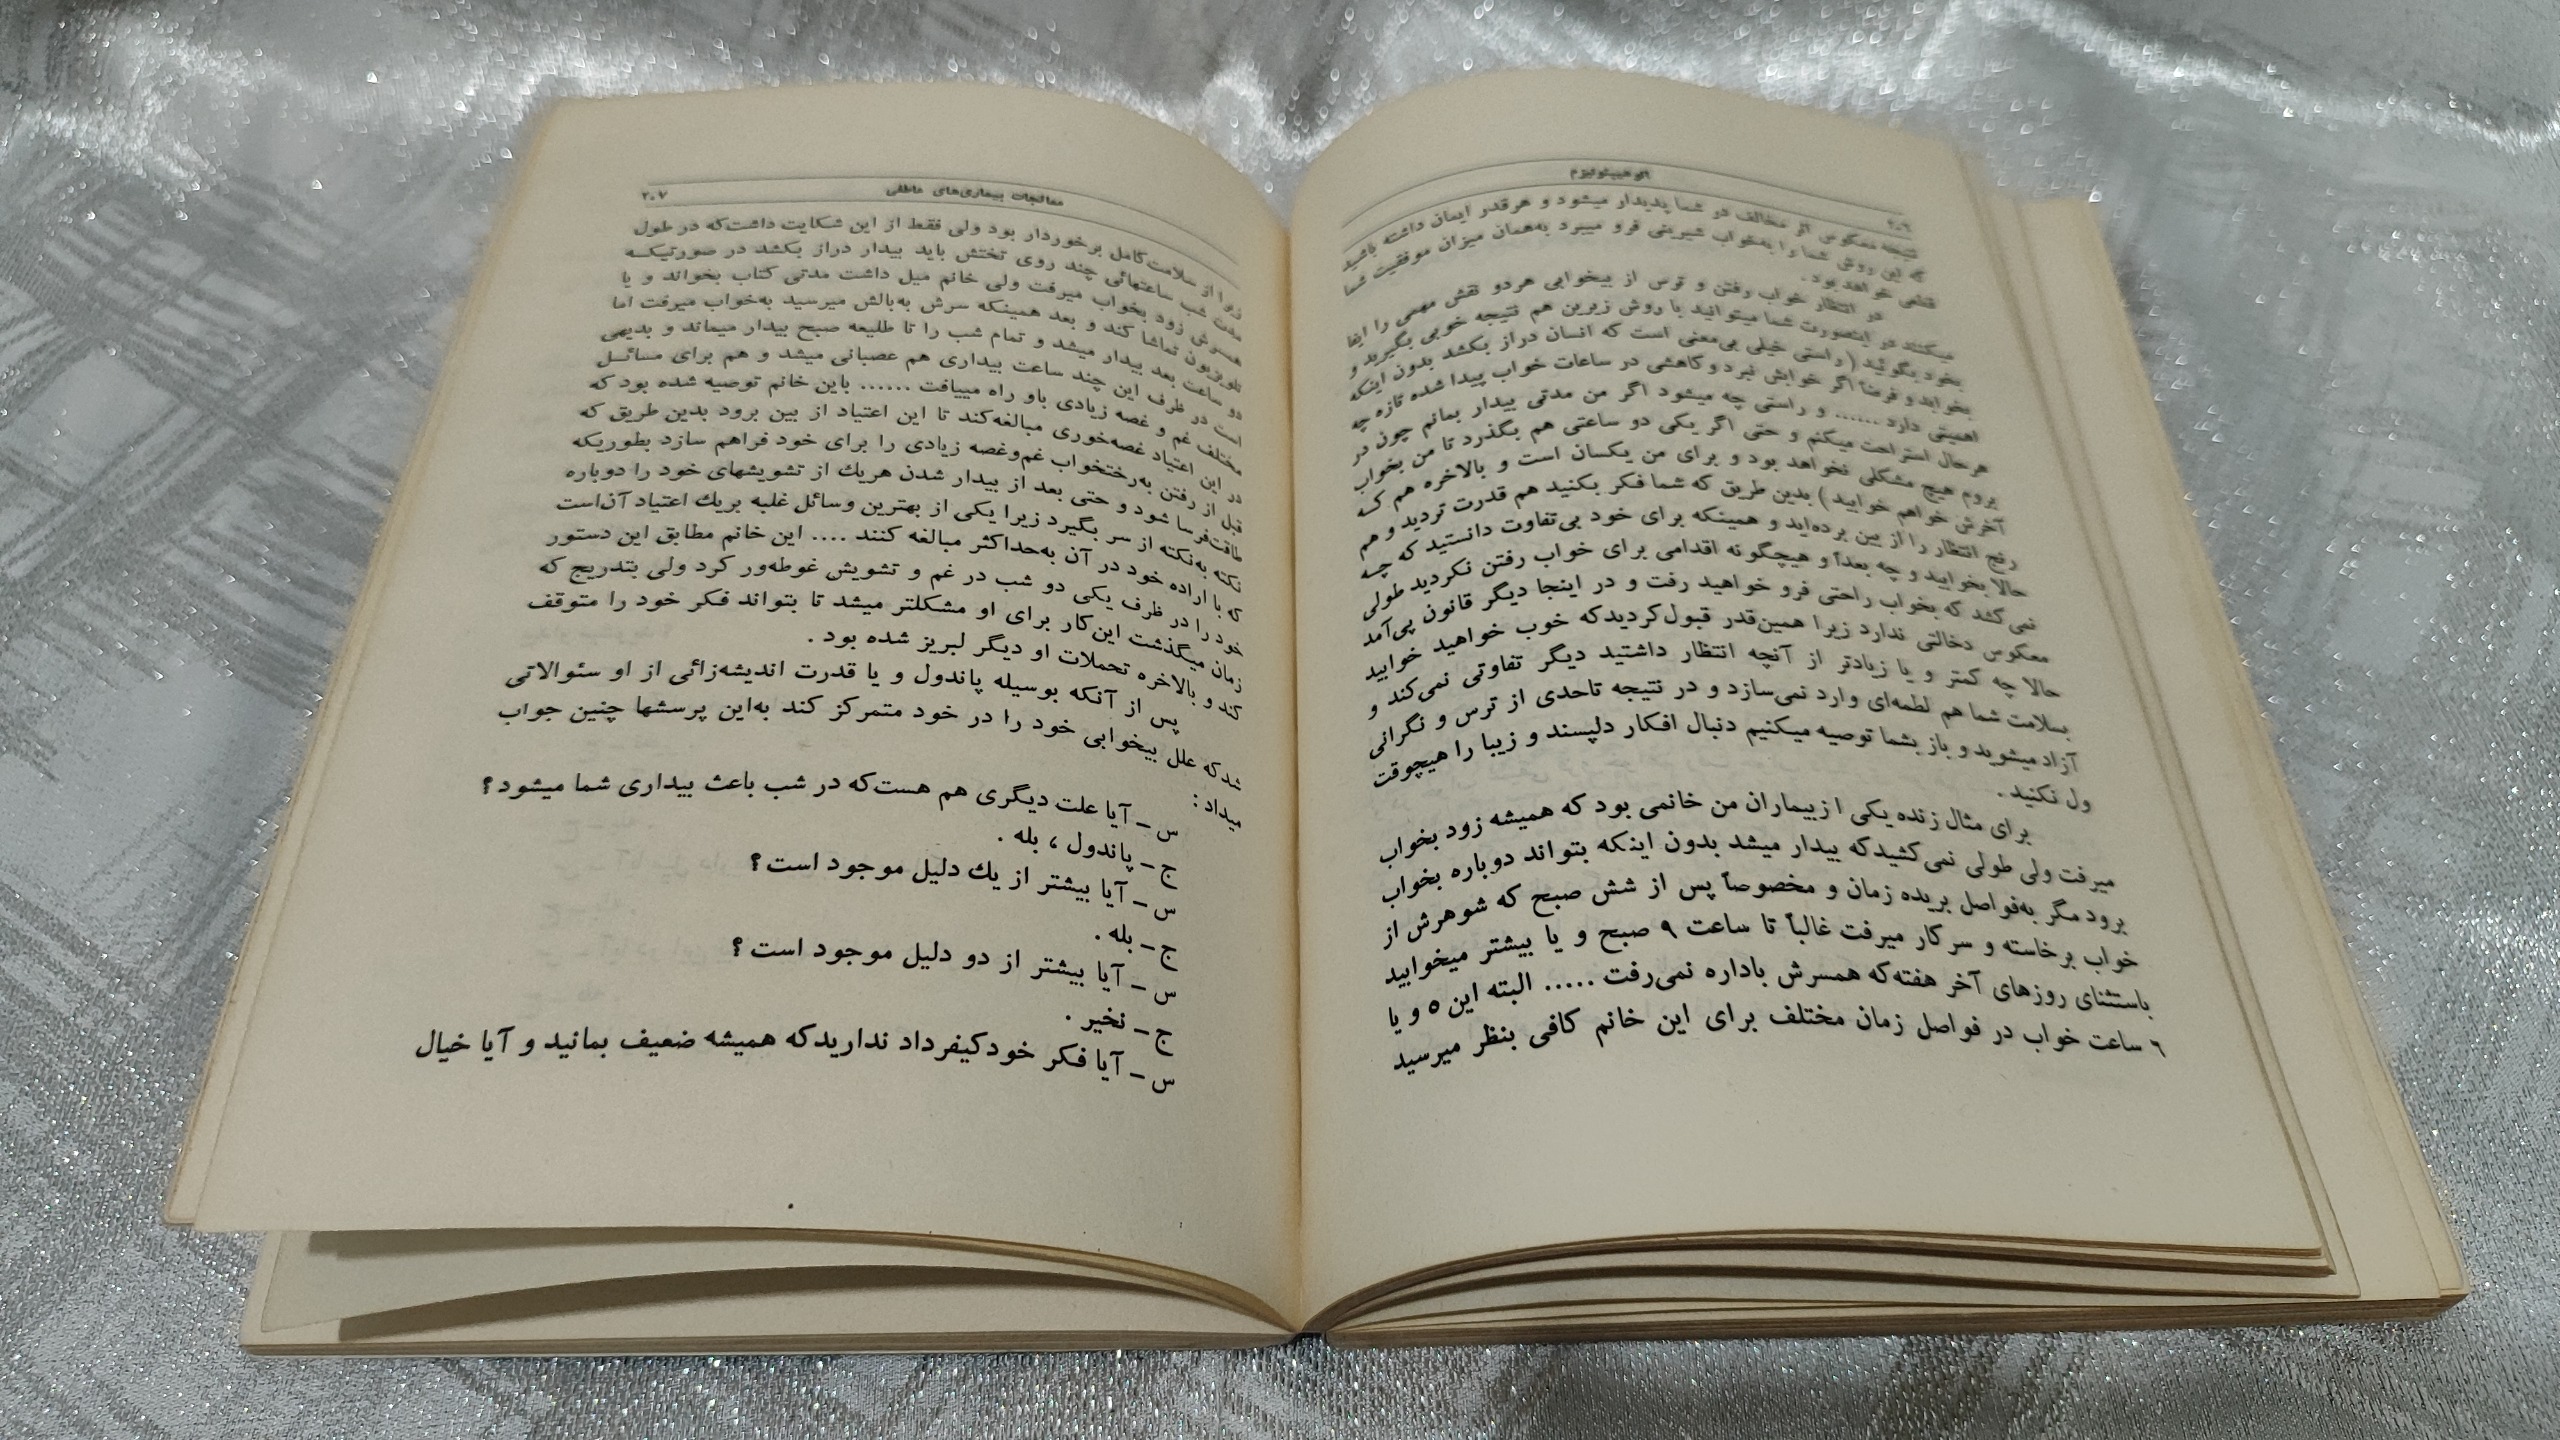 ۲۰۶
اتو هیپنوتیزم
نتیجه معکوس اثر مخالف در شما پدیدار میشود و هرقدر ایمان داشته باشید
که این روش شما را بخواب شیرینی فرو میبرد به‌همان میزان موفقیت شما
قطعی خواهد بود .
در انتظار خواب رفتن و ترس از بیخوابی هردو نقش مهمی را ایفا
میکنند در اینصورت شما میتوانید با روش زیرین هم نتیجه خوبی بگیرید و
بخود بگوئید (راستی خیلی بی‌معنی است که انسان دراز بکشد بدون اینکه
بخوابد و فرضاً اگر خوابش نبرد و کاهشی در ساعات خواب پیدا شده تازه چه
اهمیتی دارد ...... و راستی چه میشود اگر من مدتی بیدار بمانم چون در
هرحال استراحت میکنم و حتی اگر یکی دو ساعتی هم بگذرد تا من بخواب
بروم هیچ مشکلی نخواهد بود و برای من یکسان است و بالاخره هم که
آخرش خواهم خوابید) بدین طریق که شما فکر بکنید هم قدرت تردید و هم
رنج انتظار را از بین برده‌اید و همینکه برای خود بی‌تفاوت دانستید که چه
حالا بخوابید و چه بعداً و هیچگونه اقدامی برای خواب رفتن نکردید طولی
نمی‌کشد که بخواب راحتی فرو خواهید رفت و در اینجا دیگر قانون پی‌آمد
معکوس دخالتی ندارد زیرا همین‌قدر قبول‌کردیدکه خوب خواهید خوابید
حالا چه کمتر و یا زیادتر از آنچه انتظار داشتید دیگر تفاوتی نمی‌کند و
بسلامت شما هم لطمه‌ای وارد نمی‌سازد و در نتیجه تاحدی از ترس و نگرانی
آزاد میشوید و باز بشما توصیه میکنیم دنبال افکار دلپسند و زیبا را هیچوقت
ول نکنید .
برای مثال زنده یکی ازبیماران من خانمی بود که همیشه زود بخواب
میرفت ولی طولی نمی‌کشیدکه بیدار میشد بدون اینکه بتواند دوباره بخواب
برود مگر به‌فواصل بریده زمان و مخصوصاً پس از شش صبح که شوهرش از
خواب برخاسته و سرکار میرفت غالباً تا ساعت ۹ صبح و یا بیشتر میخوابید
باستثنای روزهای آخر هفته‌که همسرش باداره نمی‌رفت ..... البته این ۵ و یا
۶ ساعت خواب در فواصل زمان مختلف برای این خانم کافی بنظر میرسید
معالجات بیماری‌های عاطفی
۲۰۷
زیرا از سلامت‌کامل برخوردار بود ولی فقط از این شکایت داشت‌که در طول
مدت شب ساعتهائی چند روی تختش باید بیدار دراز بکشد در صورتیکه
همسرش زود بخواب میرفت ولی خانم میل داشت مدتی کتاب بخواند و یا
تلویزیون تماشا کند و بعد همینکه سرش به‌بالش میرسید به‌خواب میرفت اما
دو ساعت بعد بیدار میشد و تمام شب را تا طلیعه صبح بیدار میماند و بدیهی
است در ظرف این چند ساعت بیداری هم عصبانی میشد و هم برای مسائل
مختلف غم و غصه زیادی باو راه مییافت ...... باین خانم توصیه شده بود که
در این اعتیاد غصه‌خوری مبالغه‌کند تا این اعتیاد از بین برود بدین طریق که
قبل از رفتن به‌رختخواب غم‌وغصه زیادی را برای خود فراهم سازد بطوریکه
طاقت‌فرسا شود و حتی بعد از بیدار شدن هریك از تشویشهای خود را دوباره
نکته به‌نکته از سر بگیرد زیرا یکی از بهترین وسائل غلبه بریك اعتیاد آن‌است
که با اراده خود در آن به‌حداکثر مبالغه کنند .... این خانم مطابق این دستور
خود را در ظرف یکی دو شب در غم و تشویش غوطه‌ور کرد ولی بتدریج که
زمان میگذشت این‌کار برای او مشکلتر میشد تا بتواند فکر خود را متوقف
کند و بالاخره تحملات او دیگر لبریز شده بود .
پس از آنکه بوسیله پاندول و یا قدرت اندیشه‌زائی از او سئوالاتی
شدکه علل بیخوابی خود را در خود متمرکز کند به‌این پرسشها چنین جواب
میداد :
س ـ آیا علت دیگری هم هست‌که در شب باعث بیداری شما میشود ؟
ج ـ پاندول ، بله .
س ـ آیا بیشتر از یك دلیل موجود است ؟
ج ـ بله .
س ـ آیا بیشتر از دو دلیل موجود است ؟
ج ـ نخیر .
س ـ آیا فکر خودکیفرداد نداریدکه همیشه ضعیف بمانید و آیا خیال